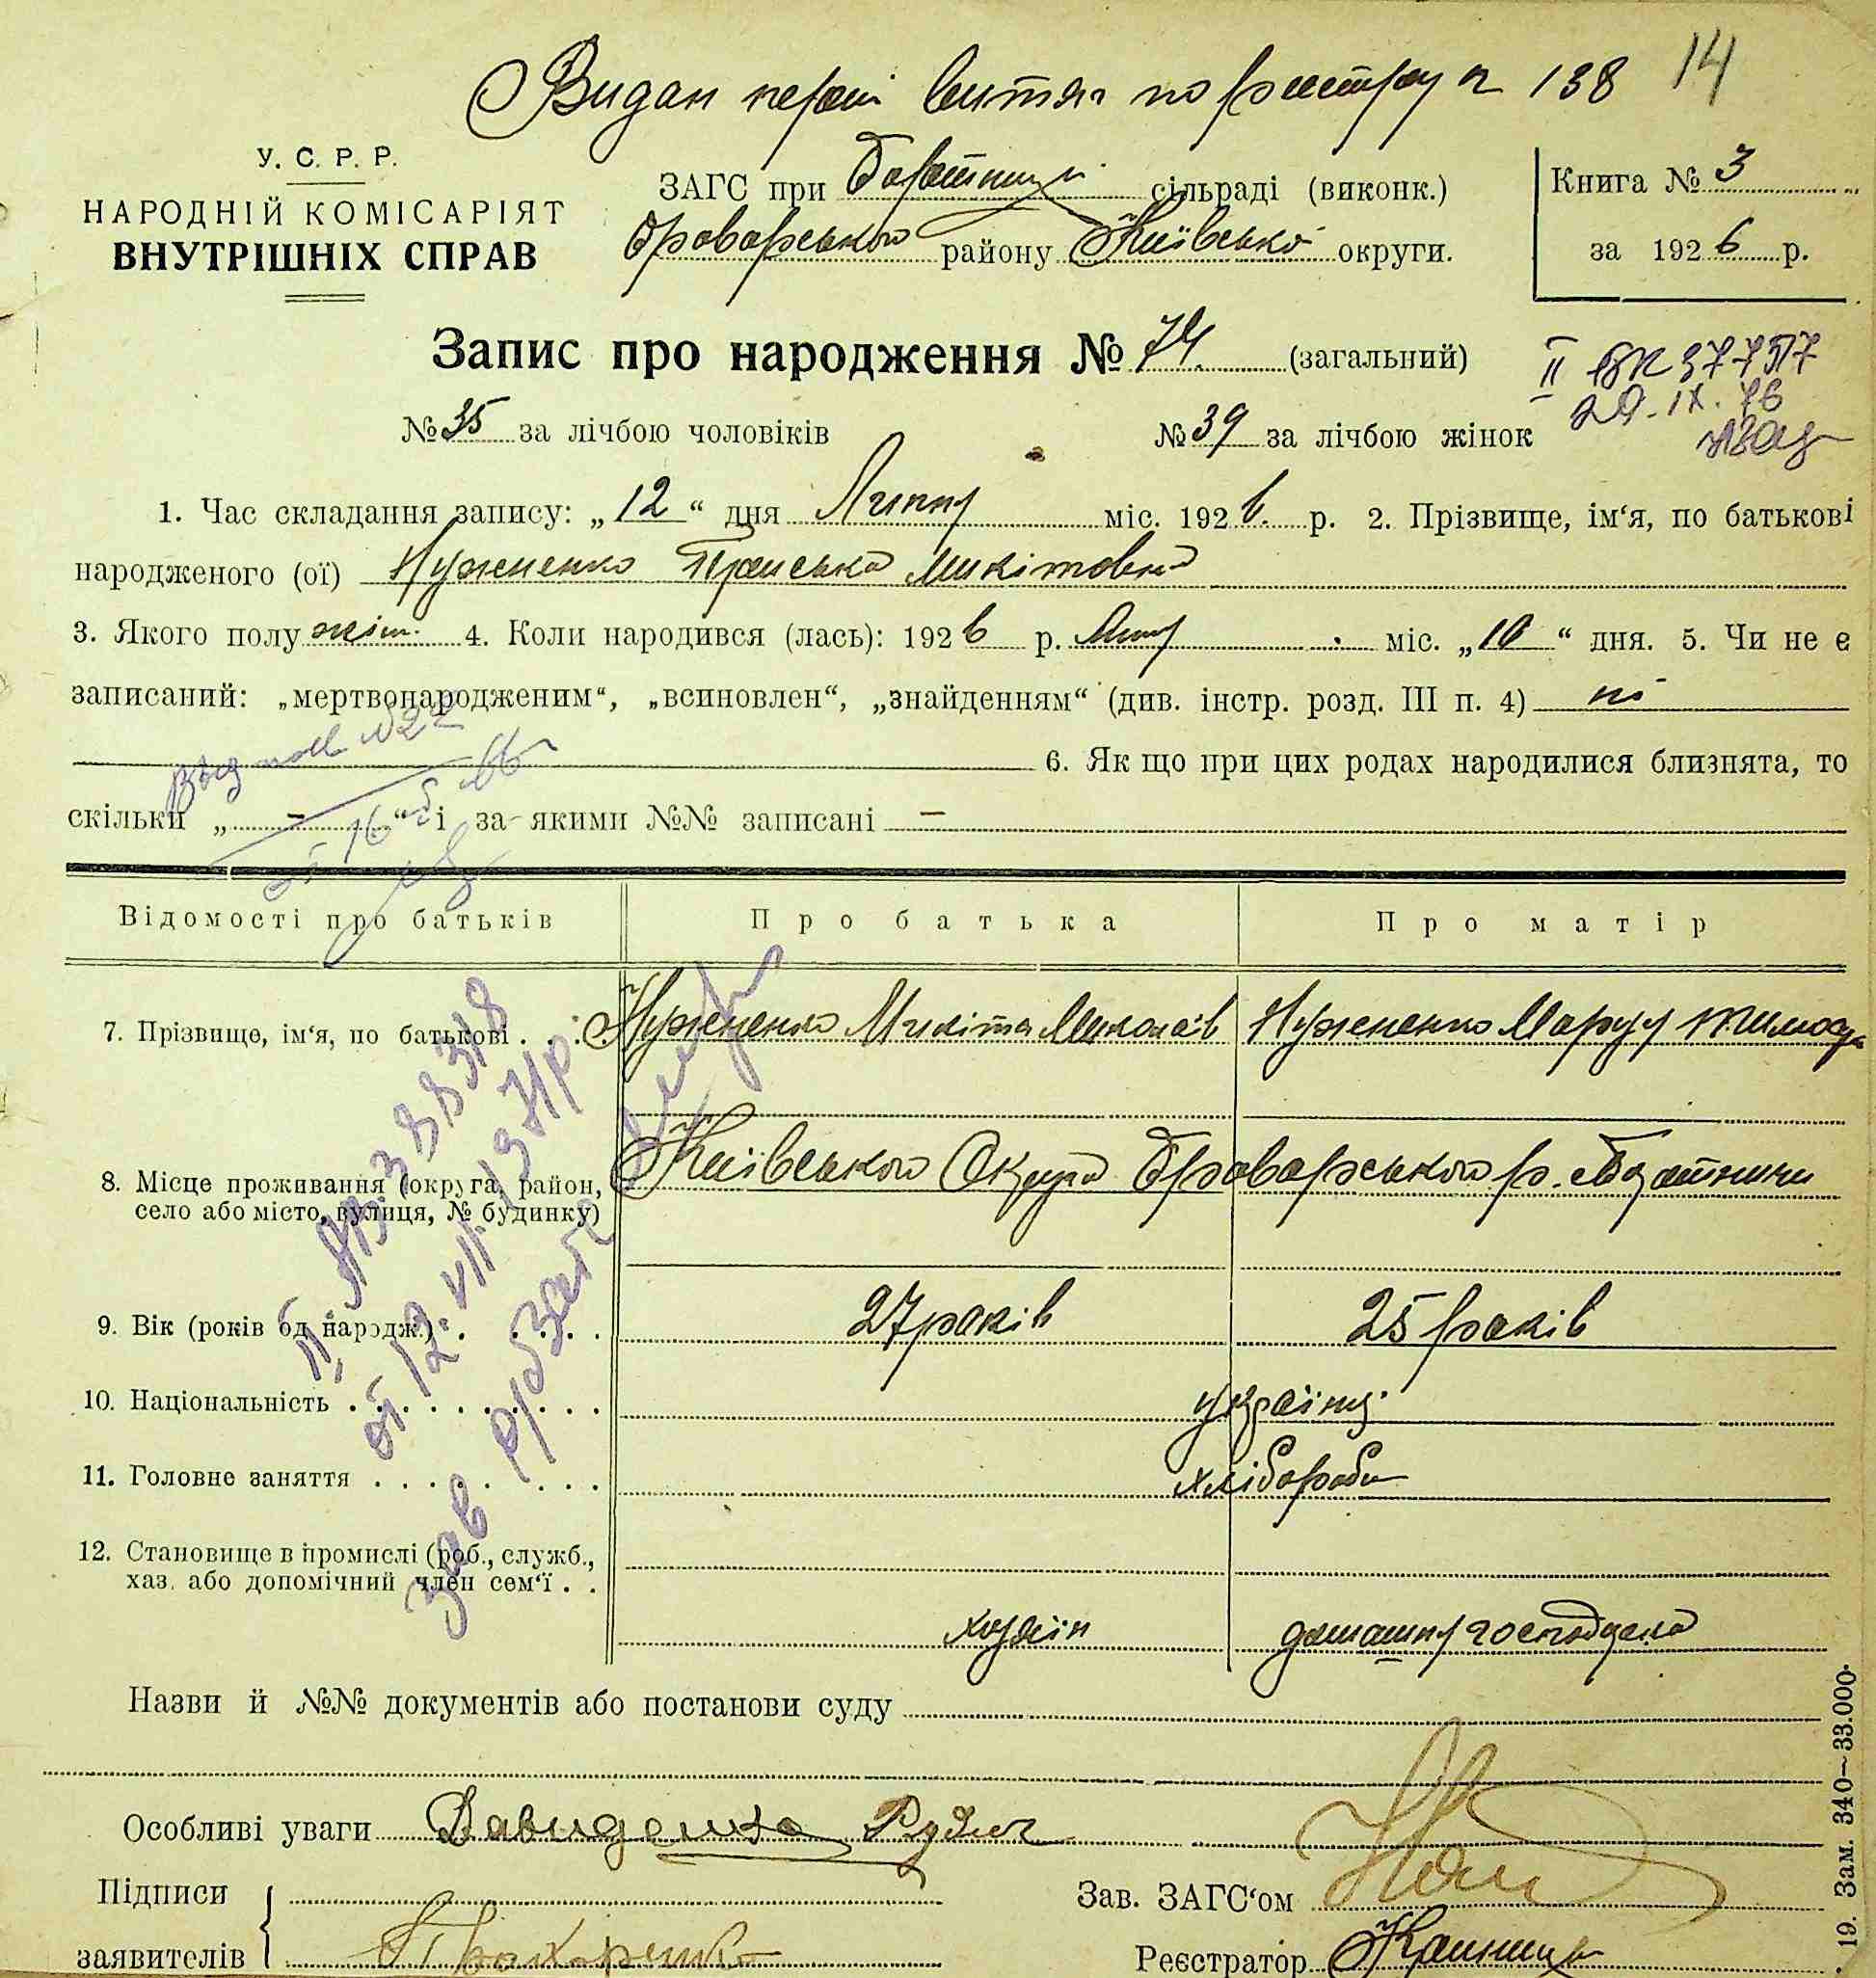 Видан перш витяг по реєстру № 138 14
У. С. Р. Р.
НАРОДНІЙ КОМІСАРІЯТ
ВНУТРІШНІХ СПРАВ
ЗАГС при сільраді (виконк.)
Броварського району Київської округи.
Книга № 3
за 1926 р.
Запис про народження № 74. (загальний)
№ 35 за лічбою чоловіків № 39 за лічбою жінок
29.IX.76
1. Час складання запису: „12“ дня Липня міс. 1926. р. 2. Прізвище, ім‘я, по батькові
народженого (ої) Нужненко Микітовна
3. Якого полу жін. 4. Коли народився (лась): 1926 р. Липня міс. „10“ дня. 5. Чи не є
записаний: „мертвонародженим“, „всиновлен“, „знайденням“ (див. інстр. розд. III п. 4) ні
6. Як що при цих родах народилися близнята, то
скільки „ – “ і за якими №№ записані –
Відомості про батьків Про батька Про матір
7. Прізвище, ім‘я, по батькові . . . Нужненко Микіта Миколаїв Нужненко Марія
8. Місце проживання (округа, район,
село або місто, вулиця, № будинку)
Київського Округа Броварського р.
9. Вік (років од народж.) . . . . 27 років 25 років
10. Національність . . . . . . . . українці
11. Головне заняття . . . . . . . хлібороби
12. Становище в промислі (роб., служб.,
хаз. або допомічний член сем‘ї . .
хазяїн домашня господарка
Назви й №№ документів або постанови суду
Особливі уваги Давиденко
Підписи
заявителів
Зав. ЗАГС‘ом
Реєстратор
19. Зам. 340—33.000.